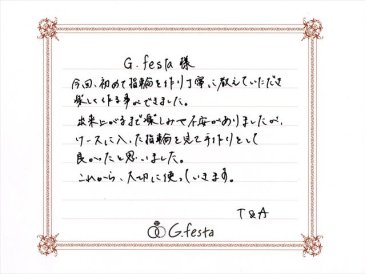 G.festa 様
今回、初めて指輪を作り丁寧に教えていただき
楽しく作る事ができました。
出来上がるまで楽しみや不安がありましたが、
ケースに入った指輪を見て手作りとして
良かったと思いました。
これから、大切に使っていきます。
T & A
G.festa